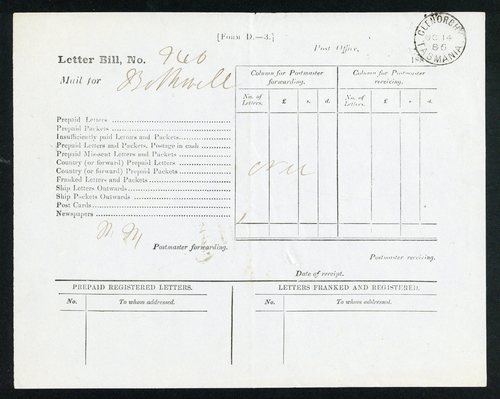 [FORM D.—3.]
GLENORCHY
OC 14
86
TASMANIA
Post Office,
188
Letter Bill, No. 940
Mail for Bothwell
Column for Postmaster forwarding.
Column for Postmaster receiving.
No. of Letters. £ s. d. No. of Letters. £ s. d.
Prepaid Letters
Prepaid Packets
Insufficiently paid Letters and Packets
Prepaid Letters and Packets, Postage in cash
Prepaid Missent Letters and Packets
Country (or forward) Prepaid Letters
Country (or forward) Prepaid Packets
Franked Letters and Packets
Ship Letters Outwards
Ship Packets Outwards
Post Cards
Newspapers
Postmaster forwarding.
Postmaster receiving.
Date of receipt.
PREPAID REGISTERED LETTERS.
LETTERS FRANKED AND REGISTERED.
No. To whom addressed.
No. To whom addressed.